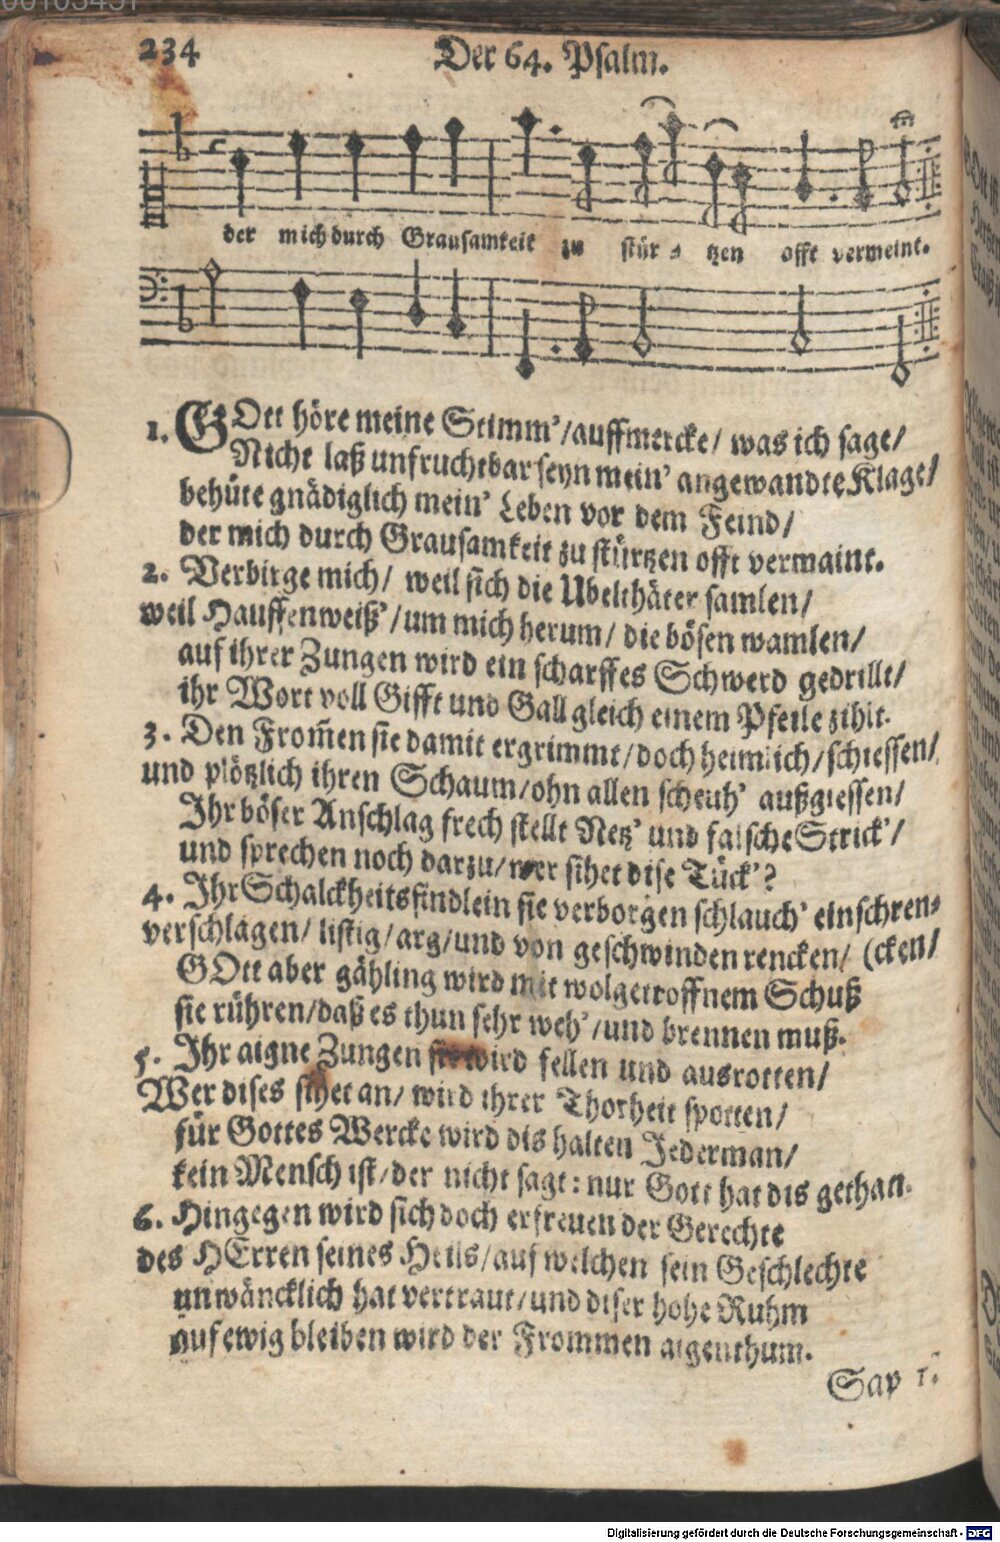 234 Der 64. Psalm.
der mich durch Grausamkeit zu stür-tzen offt vermeint.
1. GOtt höre meine Stimm'/auffmercke/ was ich sage/
Nicht laß unfruchtbar seyn mein' angewandte Klage/
behüte gnädiglich mein' Leben vor dem Feind/
der mich durch Grausamkeit zu stürtzen offt vermaint.
2. Verbirge mich/ weil sich die Ubelthäter samlen/
weil Hauffenweiß'/um mich herum/ die bösen wamlen/
auf ihrer Zungen wird ein scharffes Schwerd gedrillt/
ihr Wort voll Gifft und Gall gleich einem Pfeile zihlt.
3. Den From̄en sie damit ergrimmt/doch heimlich/schiessen/
und plötzlich ihren Schaum/ohn allen scheuh' außgiessen/
Ihr böser Anschlag frech stellt Netz' und falsche Strick'/
und sprechen noch darzu/wer sihet dise Tück'?
4. Ihr Schalckheitsfindlein sie verborgen schlauch' einschren-
verschlagen/ listig/arg/und von geschwinden rencken/ (cken/
GOtt aber gähling wird mit wolgetroffnem Schuß
sie rühren/daß es thun sehr weh'/und brennen muß.
5. Ihr aigne Zungen sie wird fellen und ausrotten/
Wer dises sihet an/ wird ihrer Thorheit spotten/
für Gottes Wercke wird dis halten Jederman/
kein Mensch ist/der nicht sagt: nur Gott hat dis gethan.
6. Hingegen wird sich doch erfreuen der Gerechte
des HErren seines Heils/auf welchen sein Geschlechte
unwäncklich hat vertraut/und diser hohe Ruhm
auf ewig bleiben wird der Frommen aigenthum.
Sap 1.
Digitalisierung gefördert durch die Deutsche Forschungsgemeinschaft - DFG